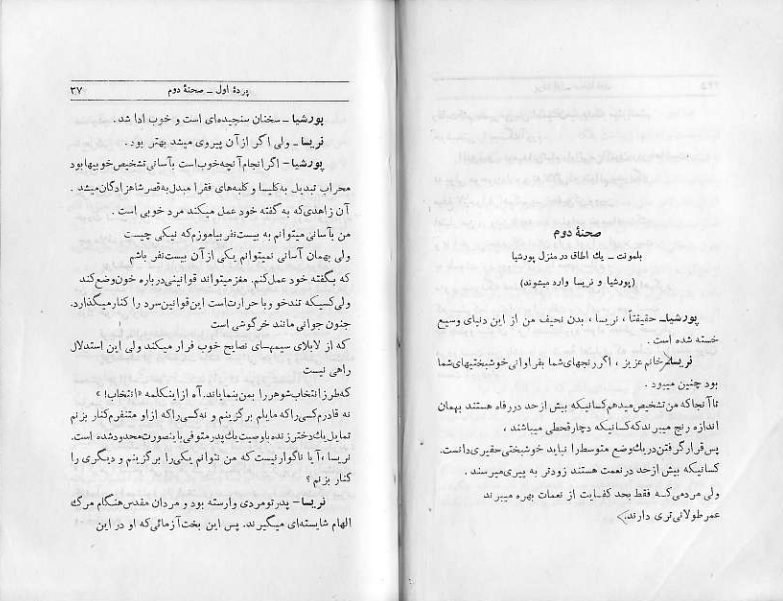 صحنهٔ دوم
بلمونت ـ یك اطاق در منزل پورشیا
(پورشیا و نریسا وارد میشوند)
پورشیاـ حقیقتاً ، نریسا، بدن نحیف من از این دنیای وسیع
خسته شده است .
نریساـ خانم عزیز ، اگر رنجهای شما بفراوانی خوشبختیهای شما
بود چنین میبود .
تاآنجاکه من تشخیص میدهم کسانیکه بیش از حد در رفاه هستند بهمان
اندازه رنج میبرند که کسانیکه دچار قحطی میباشند ،
پس قرار گرفتن در یك وضع متوسط را نباید خوشبختی حقیری دانست.
کسانیکه بیش از حد در نعمت هستند زودتر به پیری میرسند .
ولی مردمی که فقط بحد کفایت از نعمات بهره میبرند
عمر طولانی تری دارند.
پردهٔ اول ـ صحنهٔ دوم ۲۷
پورشیا ـ سخنان سنجیده‌ای است و خوب ادا شد .
نریسا ـ ولی اگر از آن پیروی میشد بهتر بود .
پورشیا ـ اگر انجام آنچه خوب است بآسانی تشخیص خوبیها بود
محراب تبدیل به کلیسا و کلبه‌های فقرا مبدل به قصر شاهزادگان میشد .
آن زاهدی که به گفته خود عمل میکند مرد خوبی است .
من بآسانی میتوانم به بیست نفر بیاموزم که نیکی چیست
ولی بهمان آسانی نمیتوانم یکی از آن بیست نفر باشم
که بگفته خود عمل کنم. مغز میتواند قوانینی درباره خون وضع کند
ولی کسیکه تندخو و با حرارت است این قوانین سرد را کنار میگذارد.
جنون جوانی مانند خرگوشی است
که از لابلای سیمهای نصایح خوب فرار میکند ولی این استدلال
راهی نیست
که طرز انتخاب شوهر را بمن بنمایاند. آه از اینکلمه «انتخاب! »
نه قادرم کسی را که مایلم برگزینم و نه کسی را که از او متنفرم کنار بزنم
تمایل یك دختر زنده با وصیت یك پدر متوفی باینصورت محدود شده است.
نریسا، آیا ناگوار نیست که من نتوانم یکی را برگزینم و دیگری را
کنار بزنم ؟
نریسا ـ پدر تو مردی وارسته بود و مردان مقدس هنگام مرگ
الهام شایسته‌ای میگیرند. پس این بخت آزمائی که او در این